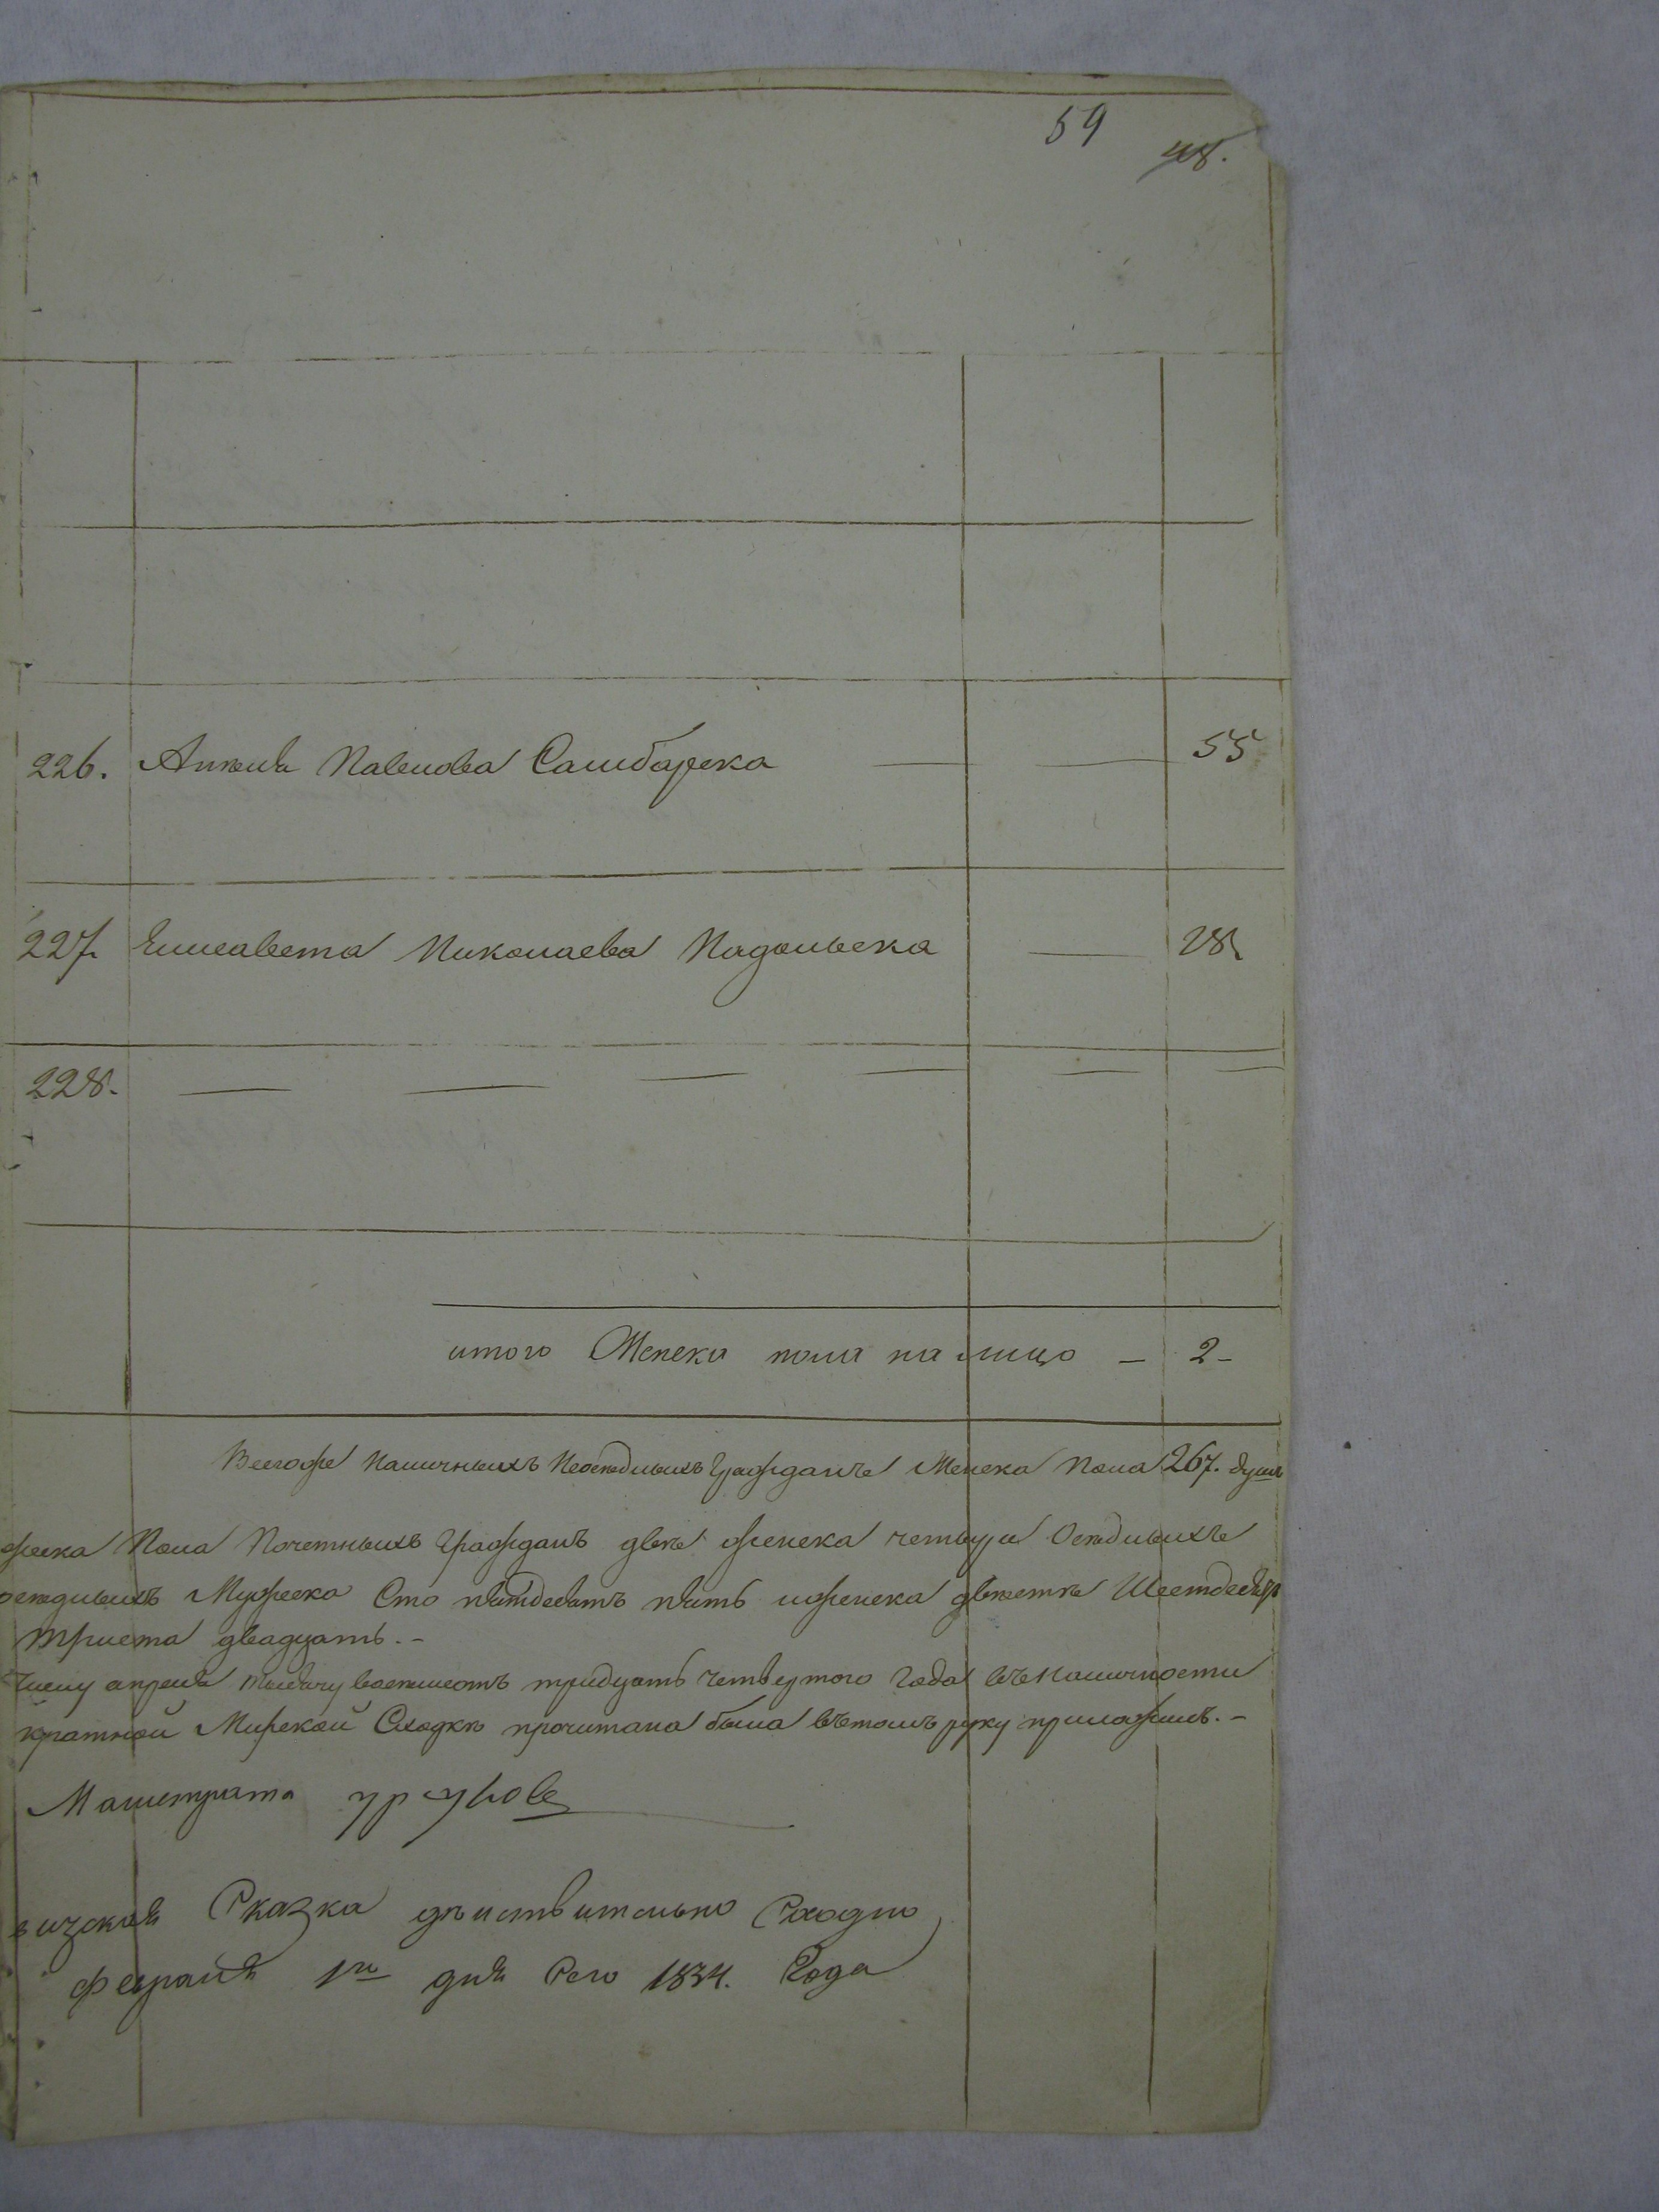 59
48.
226. Анжела Павлова Самбарска 55
227. Елисавета Николаева Надольска 28
228.
итого Женска пола на лицо – 2 –
Всегоже Наличныхъ Неоседлыхъ Гражданъ Женска Пола 267. душъ
жеска Пола Почетныхъ Гражданъ две женска четыри Оседлыхъ
оседлыхъ Мужеска Сто пятдесятъ пять иженска двѣсти Шестдесятъ
триста двадцать. –
апреля тысячу восемьсотъ тридцать четвертого Года въ наличности
кратной Мирской Сходкѣ прочитана была вътомъ руку приложилъ. –
Магистрата
визская Сказка дѣиствительно Сходно
февраля 1го дня Сего 1834. Года